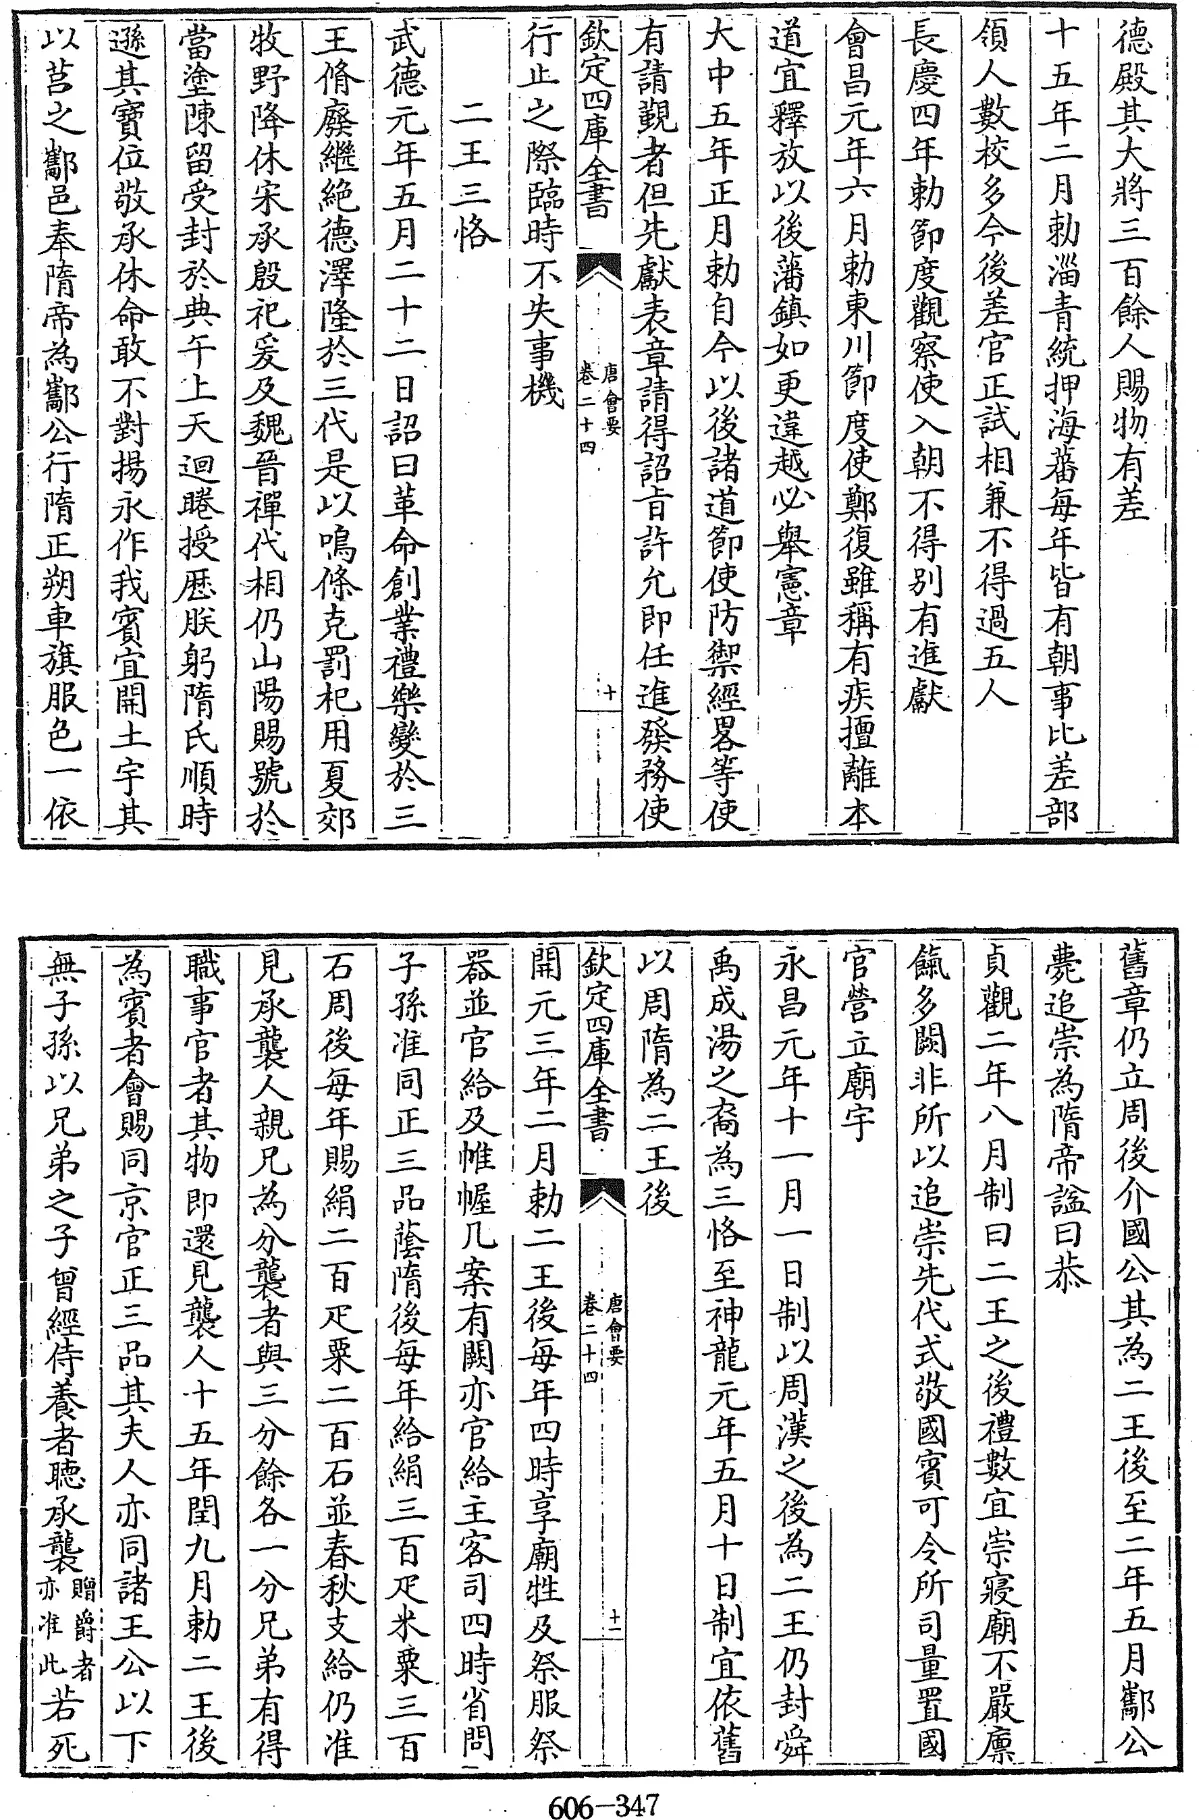 德殿其大將三百餘人賜物有差
十五年二月勅淄青統押海蕃每年皆有朝事比差部
領人數校多今後差官正試相兼不得過五人
長慶四年勅節度觀察使入朝不得别有進獻
會昌元年六月勅東川節度使鄭復雖稱有疾擅離本
道宜釋放以後藩鎮如更違越必舉憲章
大中五年正月勅自今以後諸道節使防禦經畧等使
有請觀者但先獻表章請得詔旨許允即任進發務使
欽定四庫全書
唐會要
卷二十四
十
行止之際臨時不失事機
二王三恪
武德元年五月二十二日詔曰革命創業禮樂變於三
王脩廢繼絶德澤隆於三代是以鳴條克罰杞用夏郊
牧野降休宋承殷祀爰及魏晉禪代相仍山陽賜號於
當塗陳留受封於典午上天迴睠授厯朕躬隋氏順時
遜其寶位敬承休命敢不對揚永作我賓宜開土宇其
以莒之酅邑奉隋帝為酅公行隋正朔車旗服色一依
舊章仍立周後介國公其為二王後至二年五月酅公
薨追崇為隋帝諡曰恭
貞觀二年八月制曰二王之後禮數宜崇寢廟不嚴廪
餼多闕非所以追崇先代式敬國賓可令所司量置國
官營立廟宇
永昌元年十一月一日制以周漢之後為二王仍封舜
禹成湯之裔為三恪至神龍元年五月十日制宜依舊
以周隋為二王後
欽定四庫全書
唐會要
卷二十四
十一
開元三年二月勅二王後每年四時享廟牲及祭服祭
器並官給及帷幄几案有闕亦官給主客司四時省問
子孫准同正三品蔭隋後每年給絹三百疋米粟三百
石周後每年賜絹二百疋粟二百石並春秋支給仍准
見承襲人親兄為分襲者與三分餘各一分兄弟有得
職事官者其物即還見襲人十五年閏九月勅二王後
為賓者會賜同京官正三品其夫人亦同諸王公以下
無子孫以兄弟之子曾經侍養者聽承襲贈爵者亦准此若死
606-347